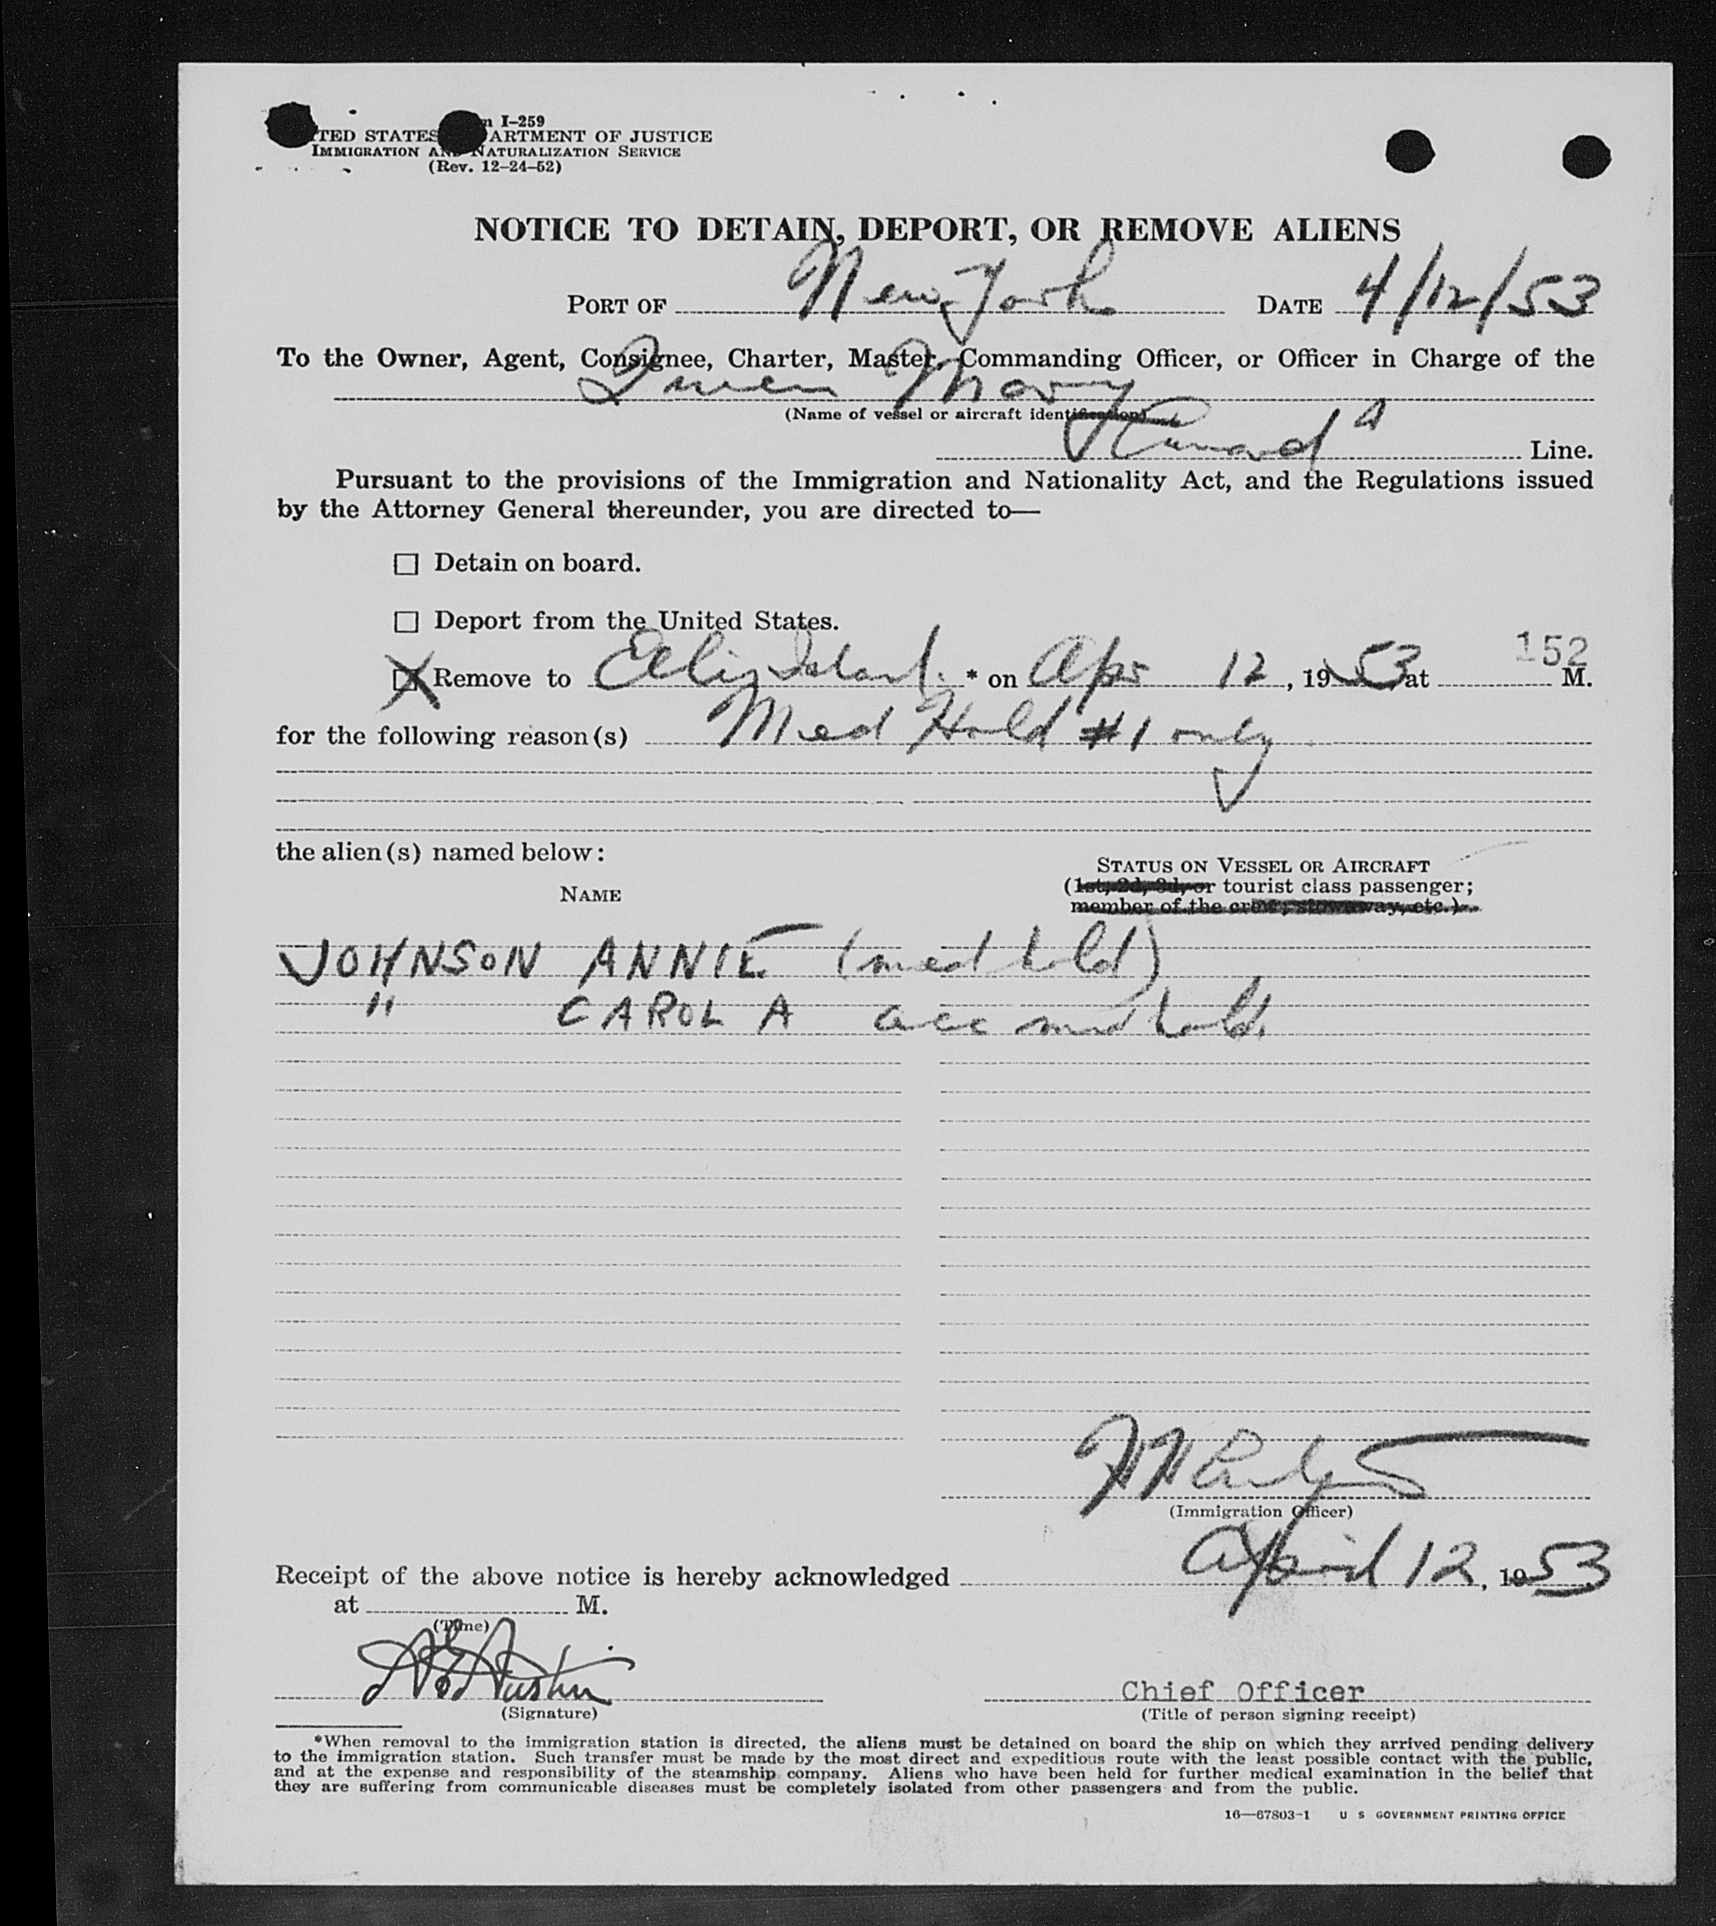 I-259
STATES ARTMENT OF JUSTICE
IMMIGRATION AND NATURALIZATION SERVICE
(Rev. 12-24-52)
NOTICE TO DETAIN, DEPORT, OR REMOVE ALIENS
PORT OF New York DATE 4/12/53
To the Owner, Agent, Consignee, Charter, Master, Commanding Officer, or Officer in Charge of the
Queen Mary
(Name of vessel or aircraft identification)
Cunard Line.
Pursuant to the provisions of the Immigration and Nationality Act, and the Regulations issued
by the Attorney General thereunder, you are directed to—
☐ Detain on board.
☐ Deport from the United States.
152
☒ Remove to Ellis Island * on Apr 12, 1953 at M.
for the following reason(s) Med Hold #1 only
the alien(s) named below:
NAME
STATUS ON VESSEL OR AIRCRAFT
(1st, 2d, 3d, or tourist class passenger;
member of the crew, stowaway, etc.)
JOHNSON ANNIE (med hold)
" CAROL A acc med hold
(Immigration Officer)
Receipt of the above notice is hereby acknowledged April 12, 1953
at M.
(Time)
Austin
(Signature)
Chief Officer
(Title of person signing receipt)
*When removal to the immigration station is directed, the aliens must be detained on board the ship on which they arrived pending delivery
to the immigration station. Such transfer must be made by the most direct and expeditious route with the least possible contact with the public,
and at the expense and responsibility of the steamship company. Aliens who have been held for further medical examination in the belief that
they are suffering from communicable diseases must be completely isolated from other passengers and from the public.
16—67803-1 U S GOVERNMENT PRINTING OFFICE